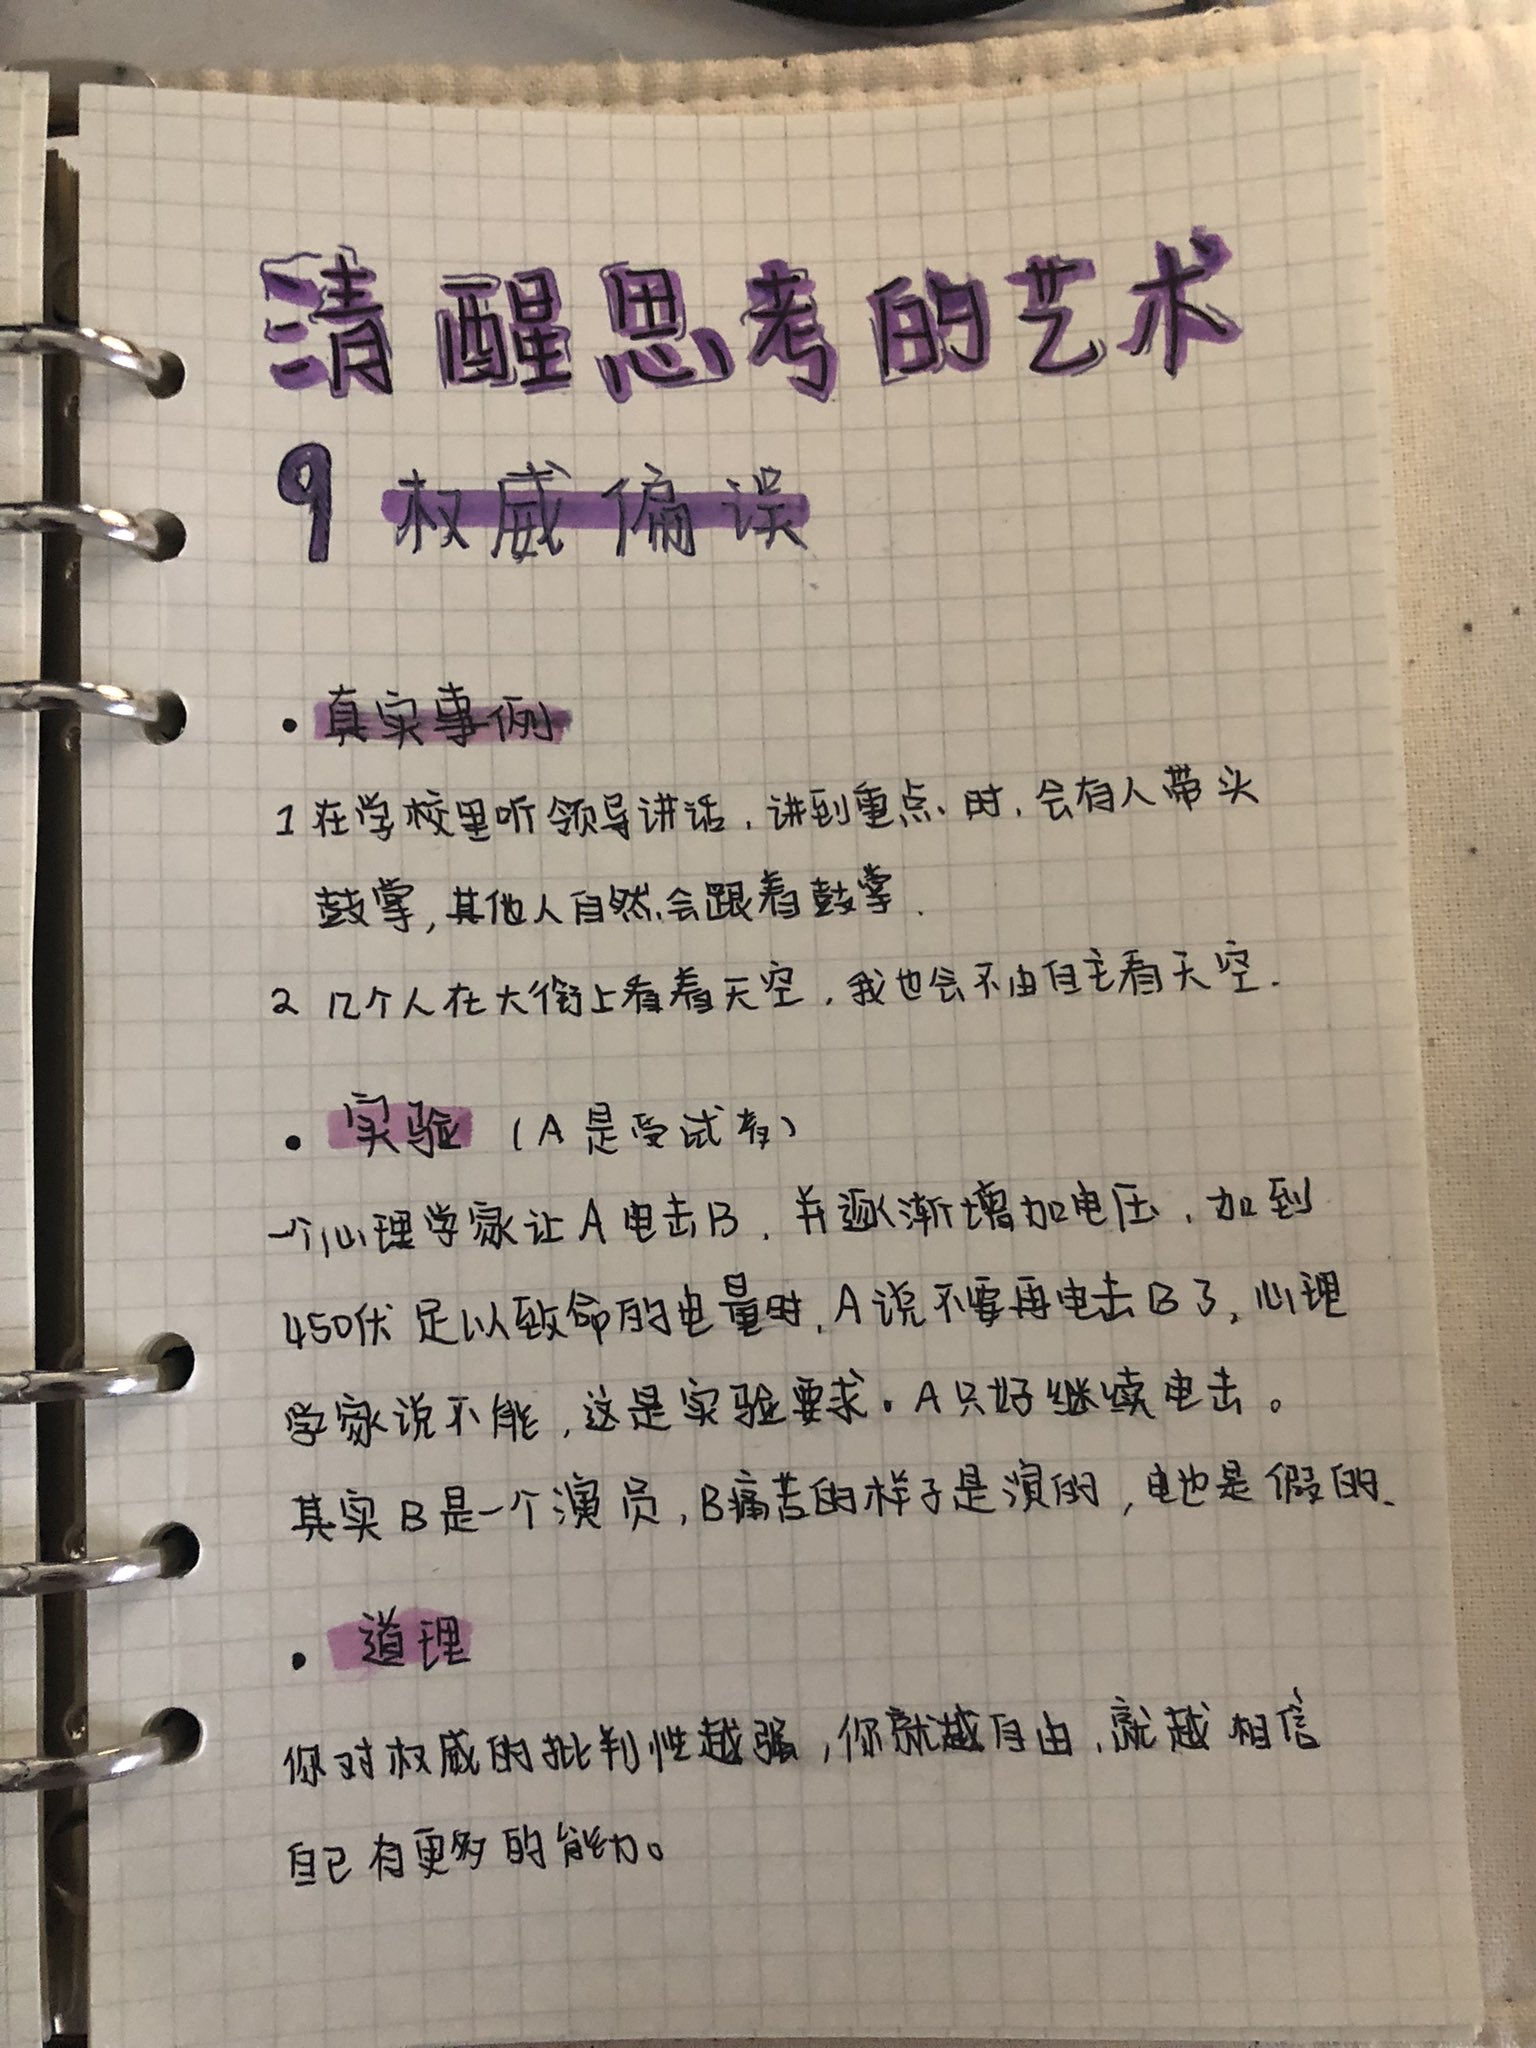 清醒思考的艺术
9 权威偏误
· 真实事例
1 在学校里听领导讲话，讲到重点时，会有人带头
鼓掌，其他人自然会跟着鼓掌．
2 几个人在大街上看着天空，我也会不由自主看天空．
· 实验（A是受试者）
一个心理学家让A电击B，并逐渐增加电压，加到
450伏足以致命的电量时，A说不要再电击B了，心理
学家说不能，这是实验要求。A只好继续电击。
其实B是一个演员，B痛苦的样子是演的，电也是假的．
· 道理
你对权威的批判性越强，你就越自由，就越相信
自己有更多的能力。